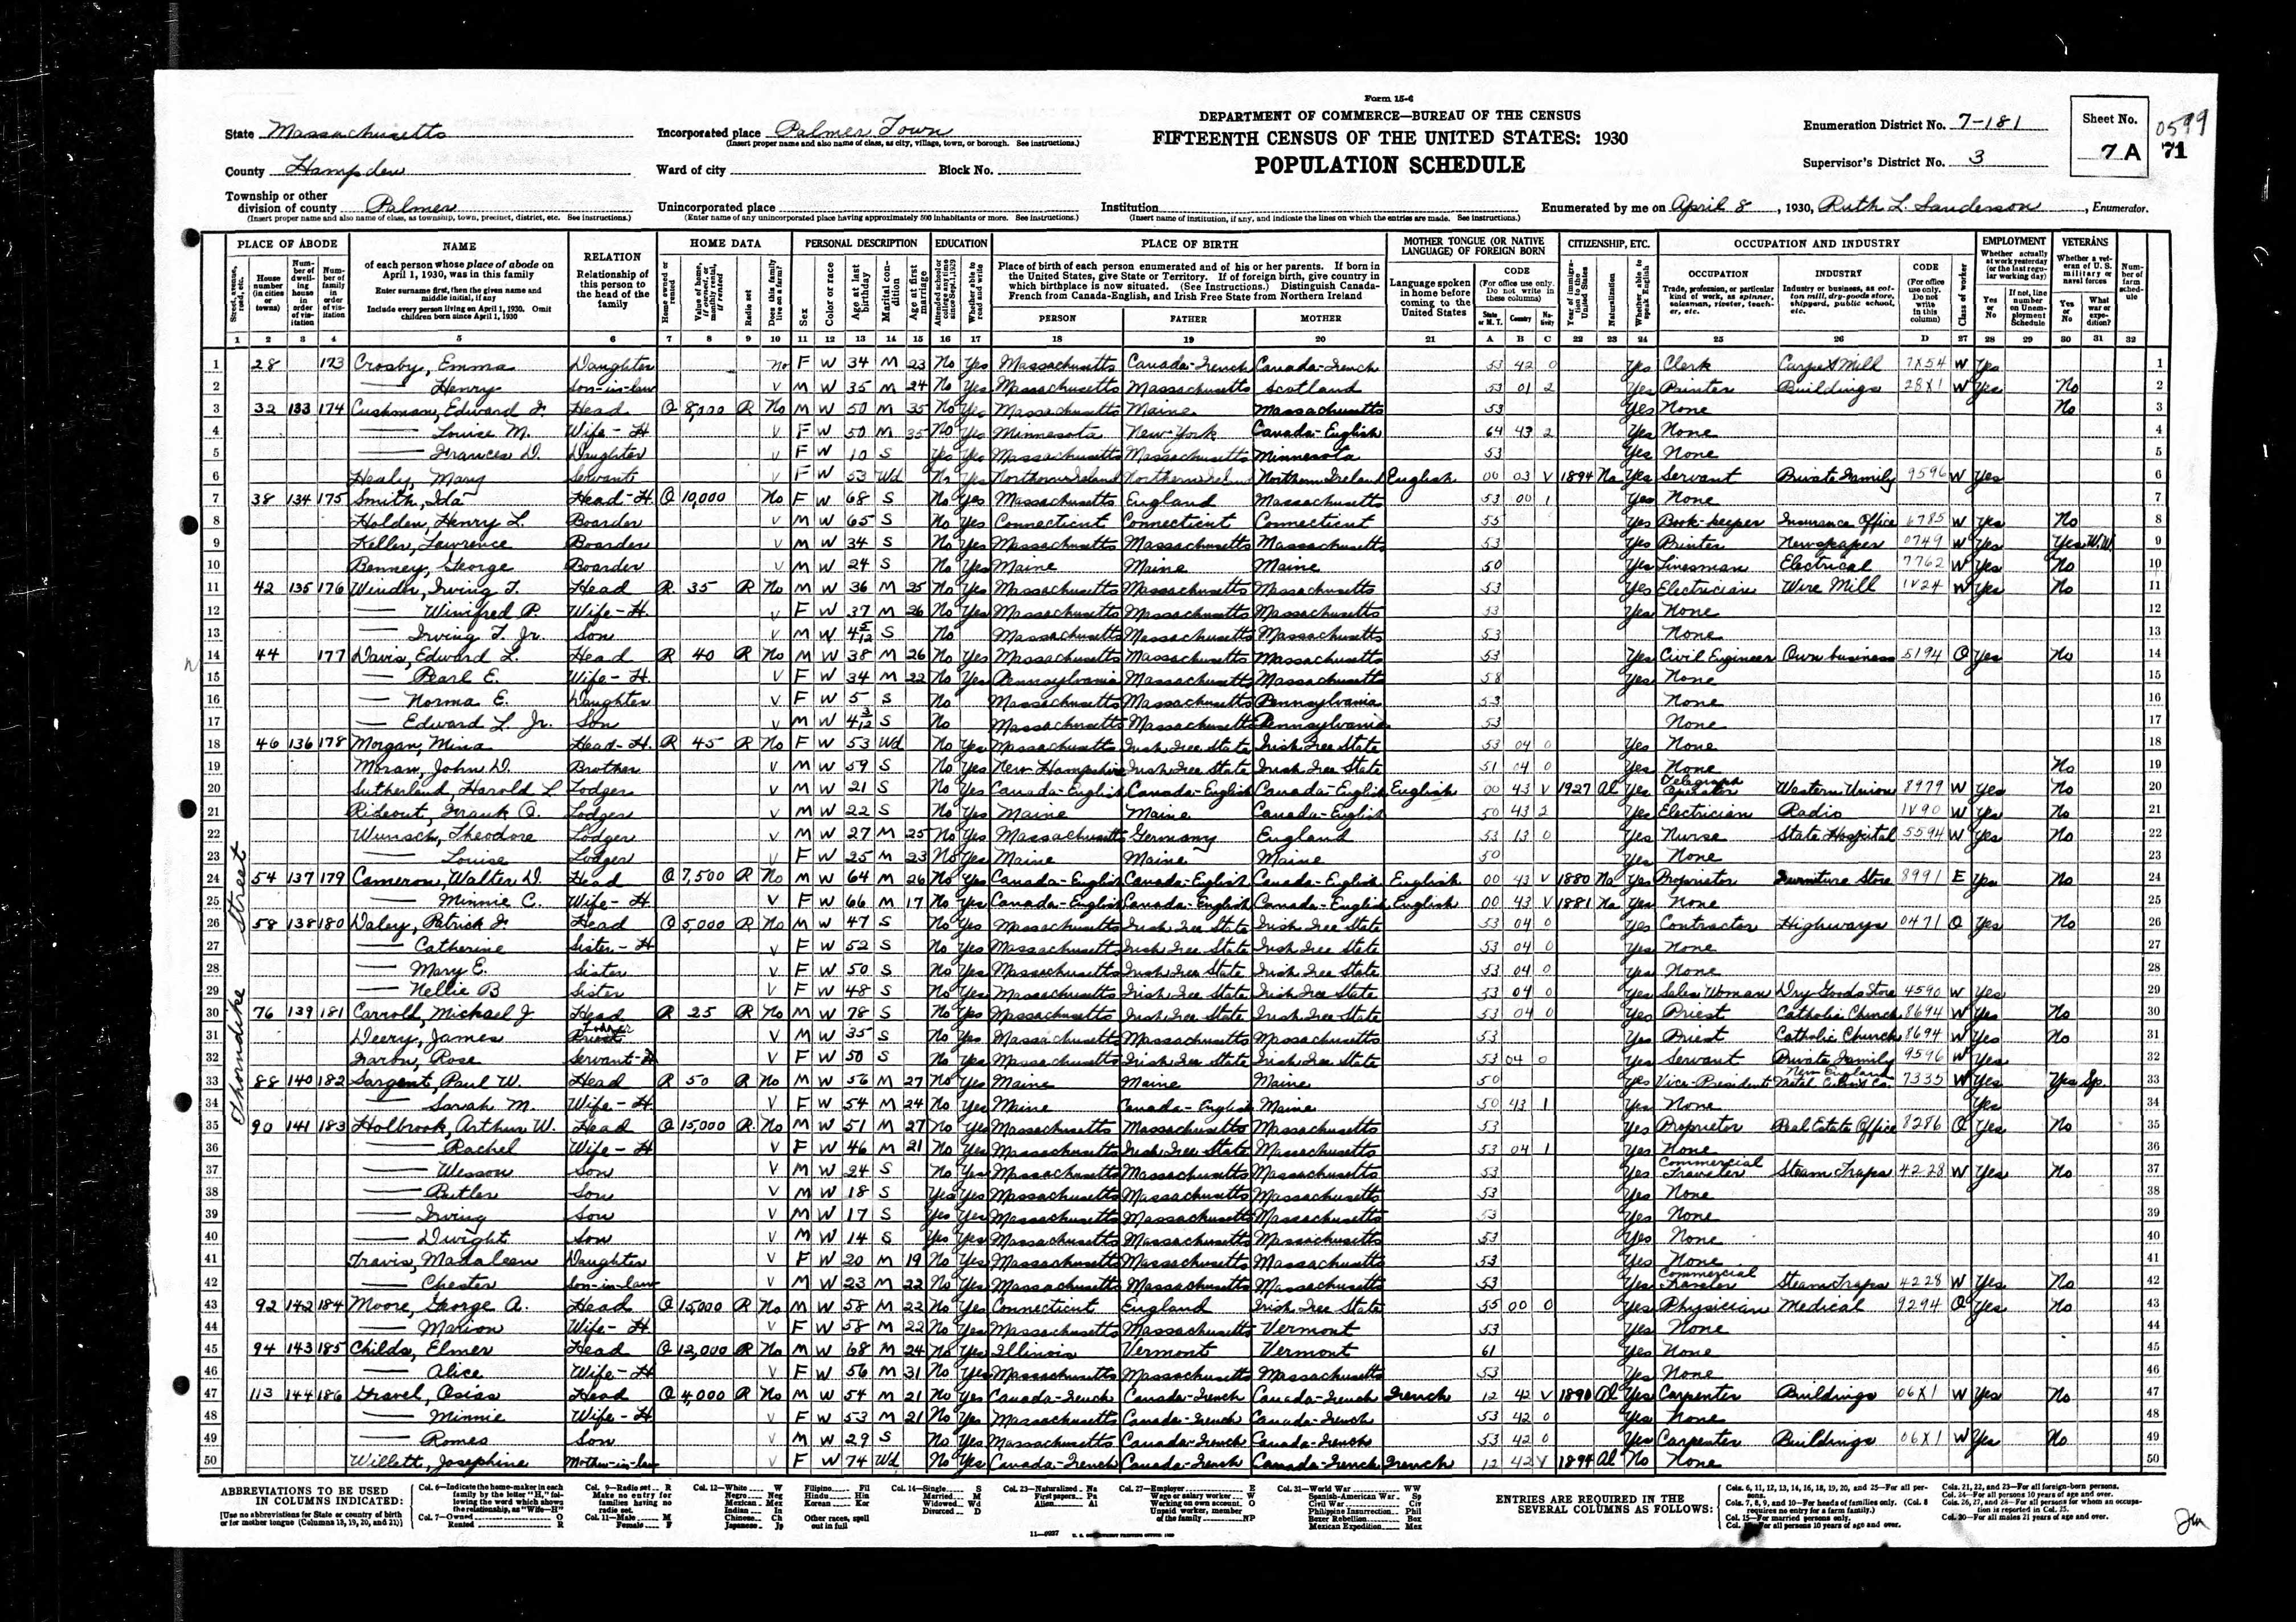 Form 15-6
DEPARTMENT OF COMMERCE—BUREAU OF THE CENSUS
FIFTEENTH CENSUS OF THE UNITED STATES: 1930
POPULATION SCHEDULE
State Massachusetts
County Hampden
Township or other division of county Palmer
(Insert proper name and also name of class, as township, town, precinct, district, etc. See instructions.)
Incorporated place Palmer Town
(Insert proper name and also name of class, as city, village, town, or borough. See instructions.)
Ward of city
Block No.
Unincorporated place
(Enter name of any unincorporated place having approximately 500 inhabitants or more. See instructions.)
Institution
(Insert name of institution, if any, and indicate the lines on which the entries are made. See instructions.)
Enumeration District No. 7-181
Supervisor's District No. 3
Sheet No. 7 A
71
Enumerated by me on April 8, 1930, Ruth L. Sanderson, Enumerator.
PLACE OF ABODE NAME RELATION HOME DATA PERSONAL DESCRIPTION EDUCATION PLACE OF BIRTH MOTHER TONGUE (OR NATIVE LANGUAGE) OF FOREIGN BORN CITIZENSHIP, ETC. OCCUPATION AND INDUSTRY EMPLOYMENT VETERANS
Thorndike Street
1 28 173 Crosby, Emma Daughter No F W 34 M 23 No Yes Massachusetts Canada-French Canada-French 53 42 0 Yes Clerk Carpet Mill 7X54 W Yes
2 — Henry Son-in-law V M W 35 M 24 No Yes Massachusetts Massachusetts Scotland 53 01 2 Yes Painter Buildings 28X1 W Yes No
3 32 133 174 Cushman, Edward F. Head O 8,000 R No M W 50 M 35 No Yes Massachusetts Maine Massachusetts 53 Yes None No
4 — Louise M. Wife-H V F W 50 M 35 No Yes Minnesota New York Canada-English 64 43 2 Yes None
5 — Frances D. Daughter V F W 10 S Yes Yes Massachusetts Massachusetts Minnesota 53 Yes None
6 Healy, Mary Servant V F W 53 Wd No Yes Northern Ireland Northern Ireland Northern Ireland English 00 03 V 1894 Na Yes Servant Private Family 9596 W Yes
7 38 134 175 Smith, Ida Head-H O 10,000 No F W 68 S No Yes Massachusetts England Massachusetts 53 00 1 Yes None
8 Holden, Henry L. Boarder V M W 65 S No Yes Connecticut Connecticut Connecticut 55 Yes Book-keeper Insurance Office 6785 W Yes No
9 Keller, Lawrence Boarder V M W 34 S No Yes Massachusetts Massachusetts Massachusetts 53 Yes Printer Newspaper 0749 W Yes Yes W.W.
10 Benney, George Boarder V M W 24 S No Yes Maine Maine Maine 50 Yes Linesman Electrical 7762 W Yes No
11 42 135 176 Winder, Irving T. Head R 35 R No M W 36 M 25 No Yes Massachusetts Massachusetts Massachusetts 53 Yes Electrician Wire Mill 1V24 W Yes No
12 — Winifred P. Wife-H. V F W 37 M 26 No Yes Massachusetts Massachusetts Massachusetts 53 Yes None
13 — Irving T. Jr. Son V M W 4 5/12 S No Massachusetts Massachusetts Massachusetts 53 None
14 44 177 Davis, Edward L. Head R 40 R No M W 38 M 26 No Yes Massachusetts Massachusetts Massachusetts 53 Yes Civil Engineer Own business 5194 O Yes No
15 — Pearl E. Wife-H. V F W 34 M 22 No Yes Pennsylvania Massachusetts Massachusetts 58 Yes None
16 — Norma E. Daughter V F W 5 S No Massachusetts Massachusetts Pennsylvania 53 None
17 — Edward L. Jr. Son V M W 4 3/12 S No Massachusetts Massachusetts Pennsylvania 53 None
18 46 136 178 Morgan, Mina Head-H. R 45 R No F W 53 Wd No Yes Massachusetts Irish Free State Irish Free State 53 04 0 Yes None
19 Moran, John D. Brother V M W 59 S No Yes New Hampshire Irish Free State Irish Free State 51 04 0 Yes None No
20 Sutherland, Harold L. Lodger V M W 21 S No Yes Canada-English Canada-English Canada-English English 00 43 V 1927 Al Yes Telegraph Operator Western Union 8979 W Yes No
21 Rideout, Frank O. Lodger V M W 22 S No Yes Maine Maine Canada-English 50 43 2 Yes Electrician Radio 1V90 W Yes No
22 Wunsch, Theodore Lodger V M W 27 M 25 No Yes Massachusetts Germany England 53 13 0 Yes Nurse State Hospital 5594 W Yes No
23 — Louise Lodger V F W 25 M 23 No Yes Maine Maine Maine 50 Yes None
24 54 137 179 Cameron, Walter D. Head O 7,500 R No M W 64 M 26 No Yes Canada-English Canada-English Canada-English English 00 43 V 1880 Na Yes Proprietor Furniture Store 8991 E Yes No
25 — Minnie C. Wife-H V F W 66 M 17 No Yes Canada-English Canada-English Canada-English English 00 43 V 1881 Na Yes None
26 58 138 180 Daley, Patrick J. Head O 5,000 R No M W 47 S No Yes Massachusetts Irish Free State Irish Free State 53 04 0 Yes Contractor Highways 0471 O Yes No
27 — Catherine Sister-H V F W 52 S No Yes Massachusetts Irish Free State Irish Free State 53 04 0 Yes None
28 — Mary E. Sister V F W 50 S No Yes Massachusetts Irish Free State Irish Free State 53 04 0 Yes None
29 — Nellie B Sister V F W 48 S No Yes Massachusetts Irish Free State Irish Free State 53 04 0 Yes Sales Woman Dry Goods Store 4590 W Yes
30 76 139 181 Carroll, Michael J Head R 25 R No M W 78 S No Yes Massachusetts Irish Free State Irish Free State 53 04 0 Yes Priest Catholic Church 8694 W Yes No
31 Deery, James Lodger V M W 35 S No Yes Massachusetts Massachusetts Massachusetts 53 Yes Priest Catholic Church 8694 W Yes No
32 Rose Servant-H V F W 50 S No Yes Massachusetts Irish Free State Irish Free State 53 04 0 Yes Servant Private Family 9596 W Yes
33 88 140 182 Sargent, Paul W. Head R 50 R No M W 56 M 27 No Yes Maine Maine Maine 50 Yes Vice-President New England Metal Co. 7335 W Yes Yes Sp.
34 — Sarah M. Wife-H V F W 54 M 24 No Yes Maine Canada-English Maine 50 43 1 Yes None Yes
35 90 141 183 Holbrook, Arthur W. Head O 15,000 R No M W 51 M 27 No Yes Massachusetts Massachusetts Massachusetts 53 Yes Proprietor Real Estate Office 8286 O Yes No
36 — Rachel Wife-H V F W 46 M 21 No Yes Massachusetts Irish Free State Massachusetts 53 04 1 Yes None
37 — Wesson Son V M W 24 S No Yes Massachusetts Massachusetts Massachusetts 53 Yes Commercial Traveler Steam Traps 4228 W Yes No
38 — Butler Son V M W 18 S Yes Yes Massachusetts Massachusetts Massachusetts 53 Yes None
39 — Irving Son V M W 17 S Yes Yes Massachusetts Massachusetts Massachusetts 53 Yes None
40 — Dwight Son V M W 14 S Yes Yes Massachusetts Massachusetts Massachusetts 53 Yes None
41 Travis, Madaleen Daughter V F W 20 M 19 No Yes Massachusetts Massachusetts Massachusetts 53 Yes None
42 — Chester Son-in-law V M W 23 M 22 No Yes Massachusetts Massachusetts Massachusetts 53 Yes Commercial Traveler Steam Traps 4228 W Yes No
43 92 142 184 Moore, George A. Head O 15,000 R No M W 58 M 22 No Yes Connecticut England Irish Free State 55 00 0 Yes Physician Medical 9294 O Yes No
44 — Marion Wife-H. V F W 58 M 22 No Yes Massachusetts Massachusetts Vermont 53 Yes None
45 94 143 185 Childs, Elmer Head O 12,000 R No M W 68 M 24 No Yes Illinois Vermont Vermont 61 Yes None
46 — Alice Wife-H V F W 56 M 31 No Yes Massachusetts Massachusetts Massachusetts 53 Yes None
47 113 144 186 Gravel, Osias Head O 4,000 R No M W 54 M 21 No Yes Canada-French Canada-French Canada-French French 12 42 V 1890 Al Yes Carpenter Buildings 06X1 W Yes No
48 — Minnie Wife-H V F W 53 M 21 No Yes Massachusetts Canada-French Canada-French 53 42 0 Yes None
49 — Romeo Son V M W 29 S No Yes Massachusetts Canada-French Canada-French 53 42 0 Yes Carpenter Buildings 06X1 W Yes No
50 Willett, Josephine Mother-in-law V F W 74 Wd No Yes Canada-French Canada-French Canada-French French 12 42 V 1894 Al No None
ABBREVIATIONS TO BE USED IN COLUMNS INDICATED:
[Use no abbreviations for State or country of birth or for mother tongue (Columns 18, 19, 20, and 21)]
ENTRIES ARE REQUIRED IN THE SEVERAL COLUMNS AS FOLLOWS: